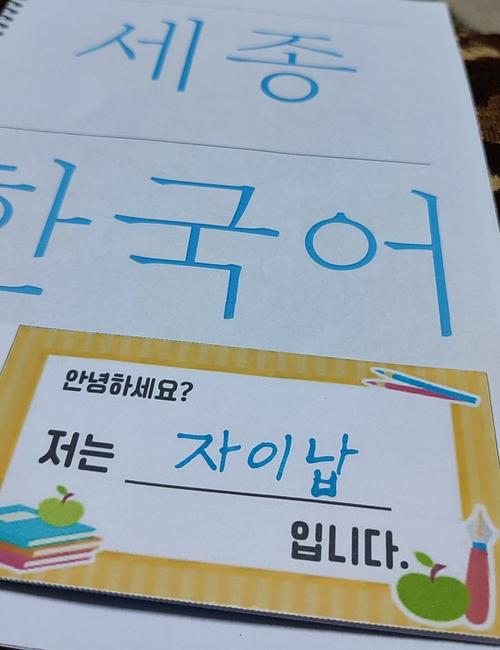 세종
한국어
안녕하세요?
저는 자이납
입니다.